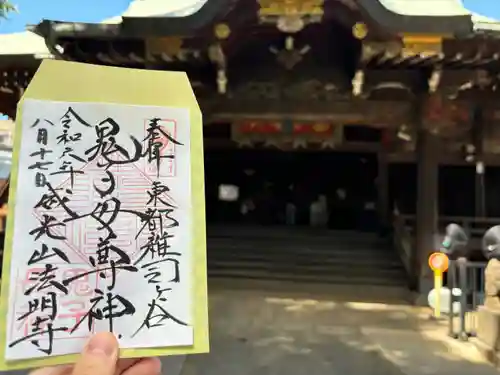 奉拝
東都雑司ヶ谷
鬼子母尊神
威光山法明寺
令和六年
八月十七日